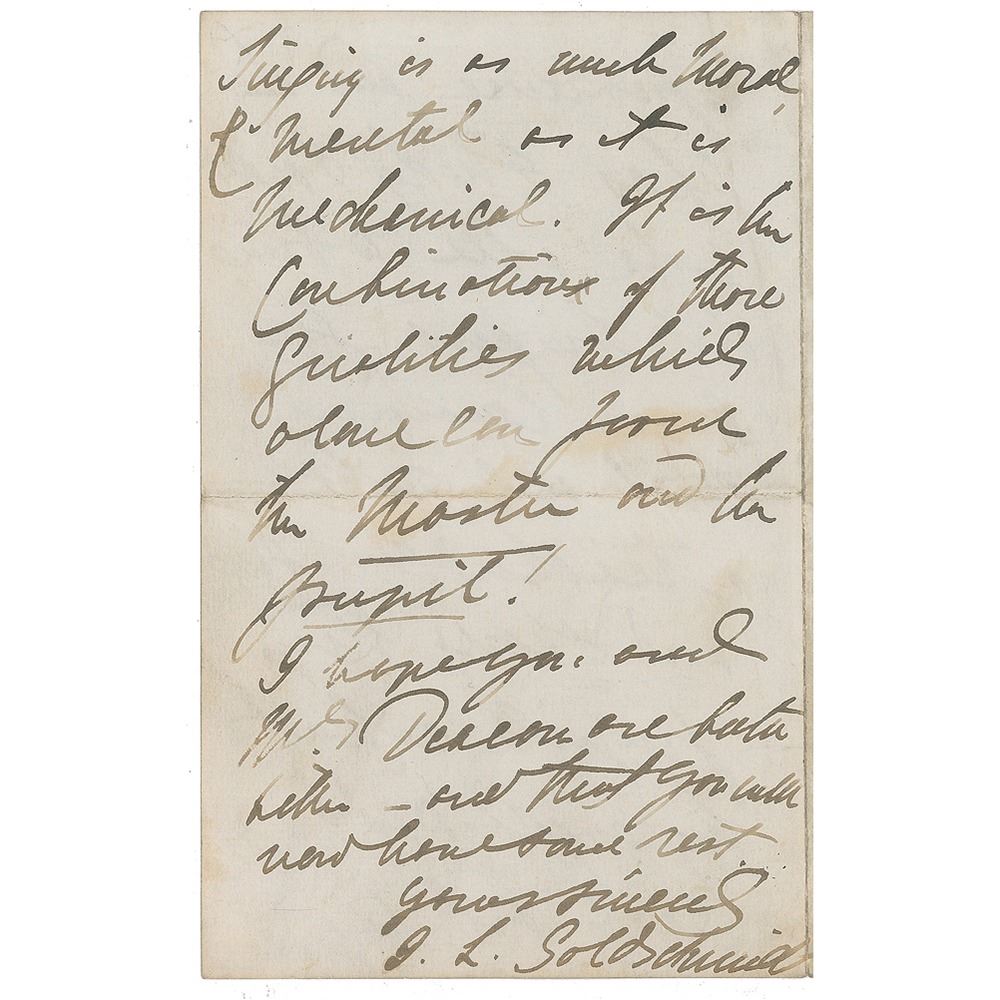 Singing is as much Moral,
& Mental as it is
Mechanical. It is the
Combination of those
Qualities which
alone can form
the Master and the
pupil!
I hope you and
Mrs Deacon are both
better – and that you will
now have some rest
yours sincerely
J. L. Goldschmidt